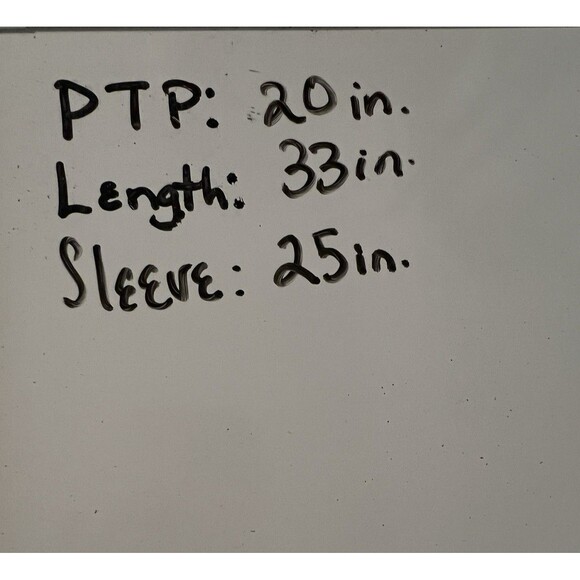 PTP: 20 in.
Length: 33 in.
Sleeve: 25 in.